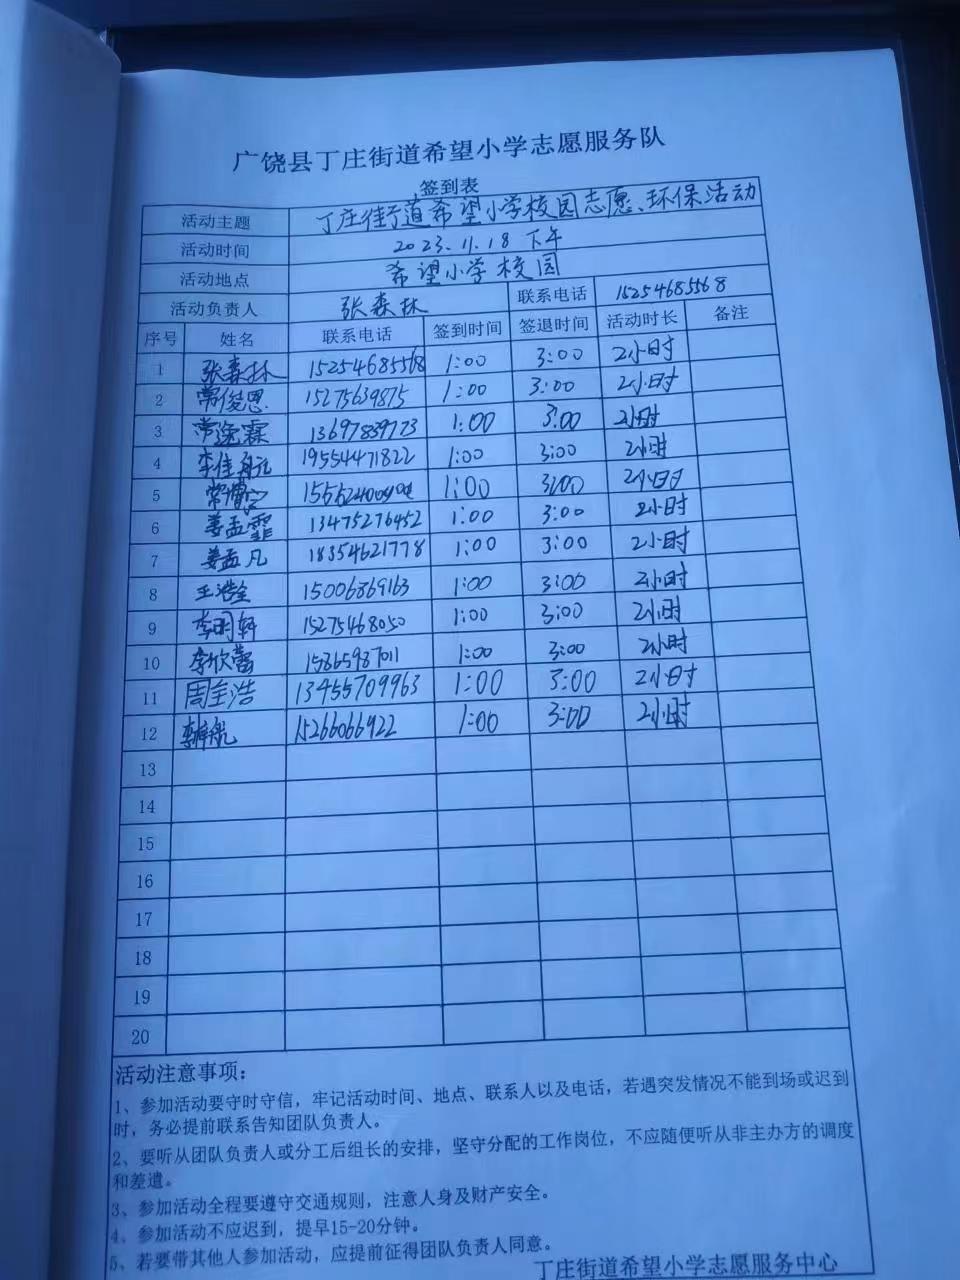 广饶县丁庄街道希望小学志愿服务队
签到表
活动主题 丁庄街道希望小学校园志愿、环保活动
活动时间 2023.11.18 下午
活动地点 希望小学校园
活动负责人 张森林 联系电话 15254685568
序号 姓名 联系电话 签到时间 签退时间 活动时长 备注
1 张森林 15254685568 1:00 3:00 2小时
2 常俊恩 15275639875 1:00 3:00 2小时
3 常逸霖 13697839773 1:00 3:00 2小时
4 李佳航 19554471822 1:00 3:00 2小时
5 1:00 3:00 2小时
6 姜孟霏 13475276452 1:00 3:00 2小时
7 姜孟凡 18354621778 1:00 3:00 2小时
8 王浩全 15006869163 1:00 3:00 2小时
9 李明轩 15275468050 1:00 3:00 2小时
10 李欣蕊 15865987011 1:00 3:00 2小时
11 周全浩 13455709963 1:00 3:00 2小时
12 15266066922 1:00 3:00 2小时
13
14
15
16
17
18
19
20
活动注意事项：
1、参加活动要守时守信，牢记活动时间、地点、联系人以及电话，若遇突发情况不能到场或迟到
时，务必提前联系告知团队负责人。
2、要听从团队负责人或分工后组长的安排，坚守分配的工作岗位，不应随便听从非主办方的调度
和差遣。
3、参加活动全程要遵守交通规则，注意人身及财产安全。
4、参加活动不应迟到，提早15-20分钟。
5、若要带其他人参加活动，应提前征得团队负责人同意。
丁庄街道希望小学志愿服务中心